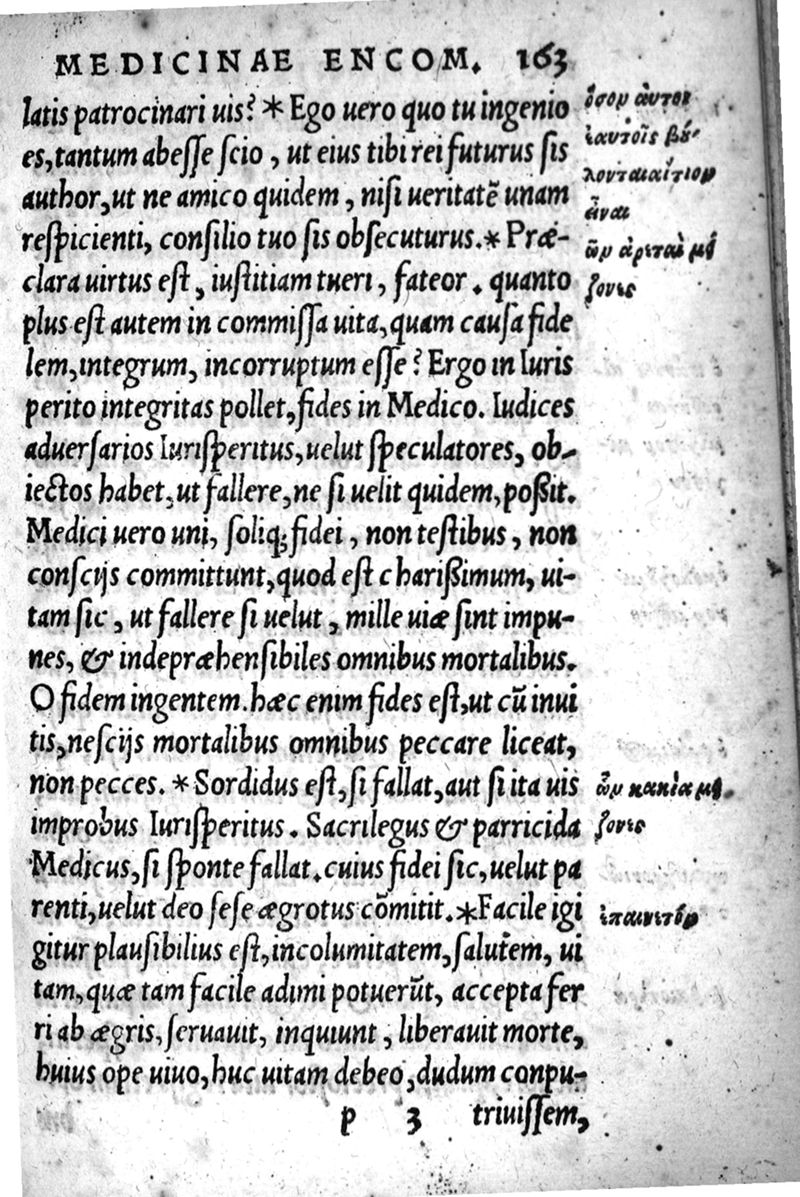 MEDICINAE ENCOM. 163
latis patrocinari uis? * Ego uero quo tu ingenio
es, tantum abesse scio, ut eius tibi rei futurus sis
author, ut ne amico quidem, nisi ueritatē unam
respicienti, consilio tuo sis obsecuturus. * Præ-
clara uirtus est, iustitiam tueri, fateor. quanto
plus est autem in commissa uita, quam causa fide
lem, integrum, incorruptum esse? Ergo in Iuris
perito integritas pollet, fides in Medico. Iudices
aduersarios Iurisperitus, uelut speculatores, ob-
iectos habet, ut fallere, ne si uelit quidem, possit.
Medici uero uni, soliq; fidei, non testibus, non
conscijs committunt, quod est charissimum, ui-
tam sic, ut fallere si uelut, mille uiæ sint impu-
nes, & indepræhensibiles omnibus mortalibus.
O fidem ingentem. hæc enim fides est, ut cū inui
tis, nescijs mortalibus omnibus peccare liceat,
non pecces. * Sordidus est, si fallat, aut si ita uis
improbus Iurisperitus. Sacrilegus & parricida
Medicus, si sponte fallat. cuius fidei sic, uelut pa
renti, uelut deo sese ægrotus cōmitit. * Facile igi
gitur plausibilius est, incolumitatem, salutem, ui
tam, quæ tam facile adimi potuerūt, accepta fer
ri ab ægris, seruauit, inquiunt, liberauit morte,
huius ope uiuo, huc uitam debeo, dudum conpu-
p 3 triuissem,
ὅσον ἀυτοὶ
ἑαυτοῖς βȣ-
λονται αἴτιον
εἶναι
ὧν ἀρεταὶ μεί
ζονες
ὧν κακία μεί
ζονες
ἐπαινετόν